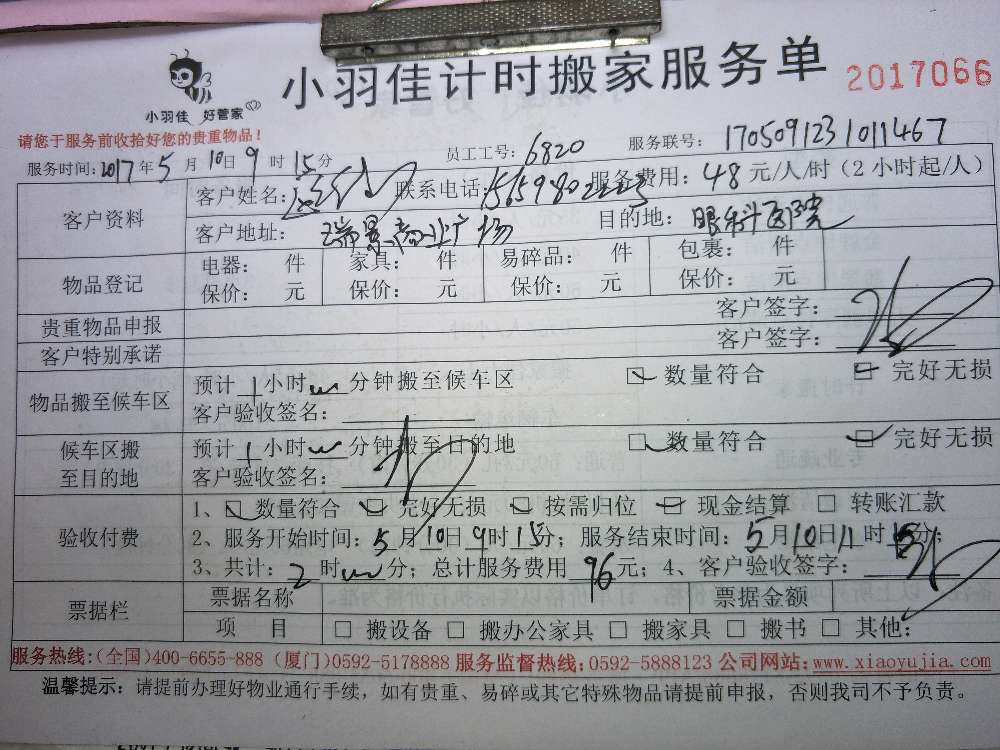 小羽佳计时搬家服务单
2017066
小羽佳 好管家
请您于服务前收拾好您的贵重物品！
服务时间：2017年5月10日9时15分 员工工号：6820 服务联号：1705091231011467
客户资料 客户姓名： 联系电话： 服务费用：48元/人/时（2小时起/人）
客户地址：瑞景商业广场 目的地：眼科医院
物品登记 电器： 件 家具： 件 易碎品： 件 包裹： 件
保价： 元 保价： 元 保价： 元 保价： 元
贵重物品申报 客户签字：
客户特别承诺 客户签字：
物品搬至候车区 预计1小时 分钟搬至候车区 ☑ 数量符合 ☑ 完好无损
客户验收签名：
候车区搬至目的地 预计1小时 分钟搬至目的地 ☑ 数量符合 ☑ 完好无损
客户验收签名：
验收付费 1、☑ 数量符合 ☑ 完好无损 ☑ 按需归位 ☑ 现金结算 □ 转账汇款
2、服务开始时间：5月10日9时15分；服务结束时间：5月10日11时15分；
3、共计：2时 分；总计服务费用96元；4、客户验收签字：
票据栏 票据名称 票据金额
项 目 □ 搬设备 □ 搬办公家具 □ 搬家具 □ 搬书 □ 其他：
服务热线：（全国）400-6655-888（厦门）0592-5178888 服务监督热线：0592-5888123 公司网站：www.xiaoyujia.com
温馨提示：请提前办理好物业通行手续，如有贵重、易碎或其它特殊物品请提前申报，否则我司不予负责。